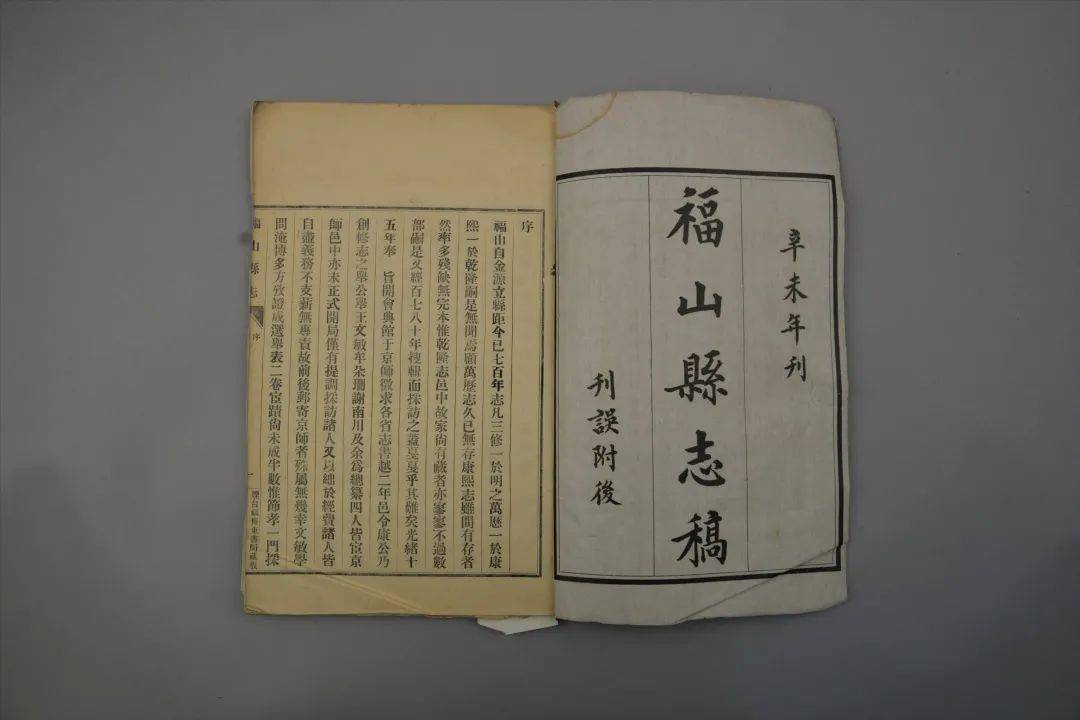 辛未年刊
福山縣志稿
刊誤附後
序
福山自金源立縣距今已七百年志凡三修一於明之萬歷一於康
熙一於乾隆嗣是無聞焉顧萬歷志久已無存康熙志雖間有存者
然率多殘缺無完本惟乾隆志邑中故家尚有藏者亦寥寥不過數
部嗣是又經百七八十年搜輯而採訪之蓋戛戛乎其難矣光緒十
五年奉 旨開會典館于京師徵求各省志書越二年邑令康公乃
創修志之舉公舉王文敏牟朵珊謝南川及余為總纂四人皆宦京
師邑中亦未正式開局僅有提調採訪諸人又以絀於經費諸人皆
自盡義務不支薪無專責故前後郵寄京師者殊屬無幾幸文敏學
問淹博多方攷證成選舉表二卷宦蹟尚未成半數惟節孝一門採
福山縣志
序
一
煙台福裕東書局藏版